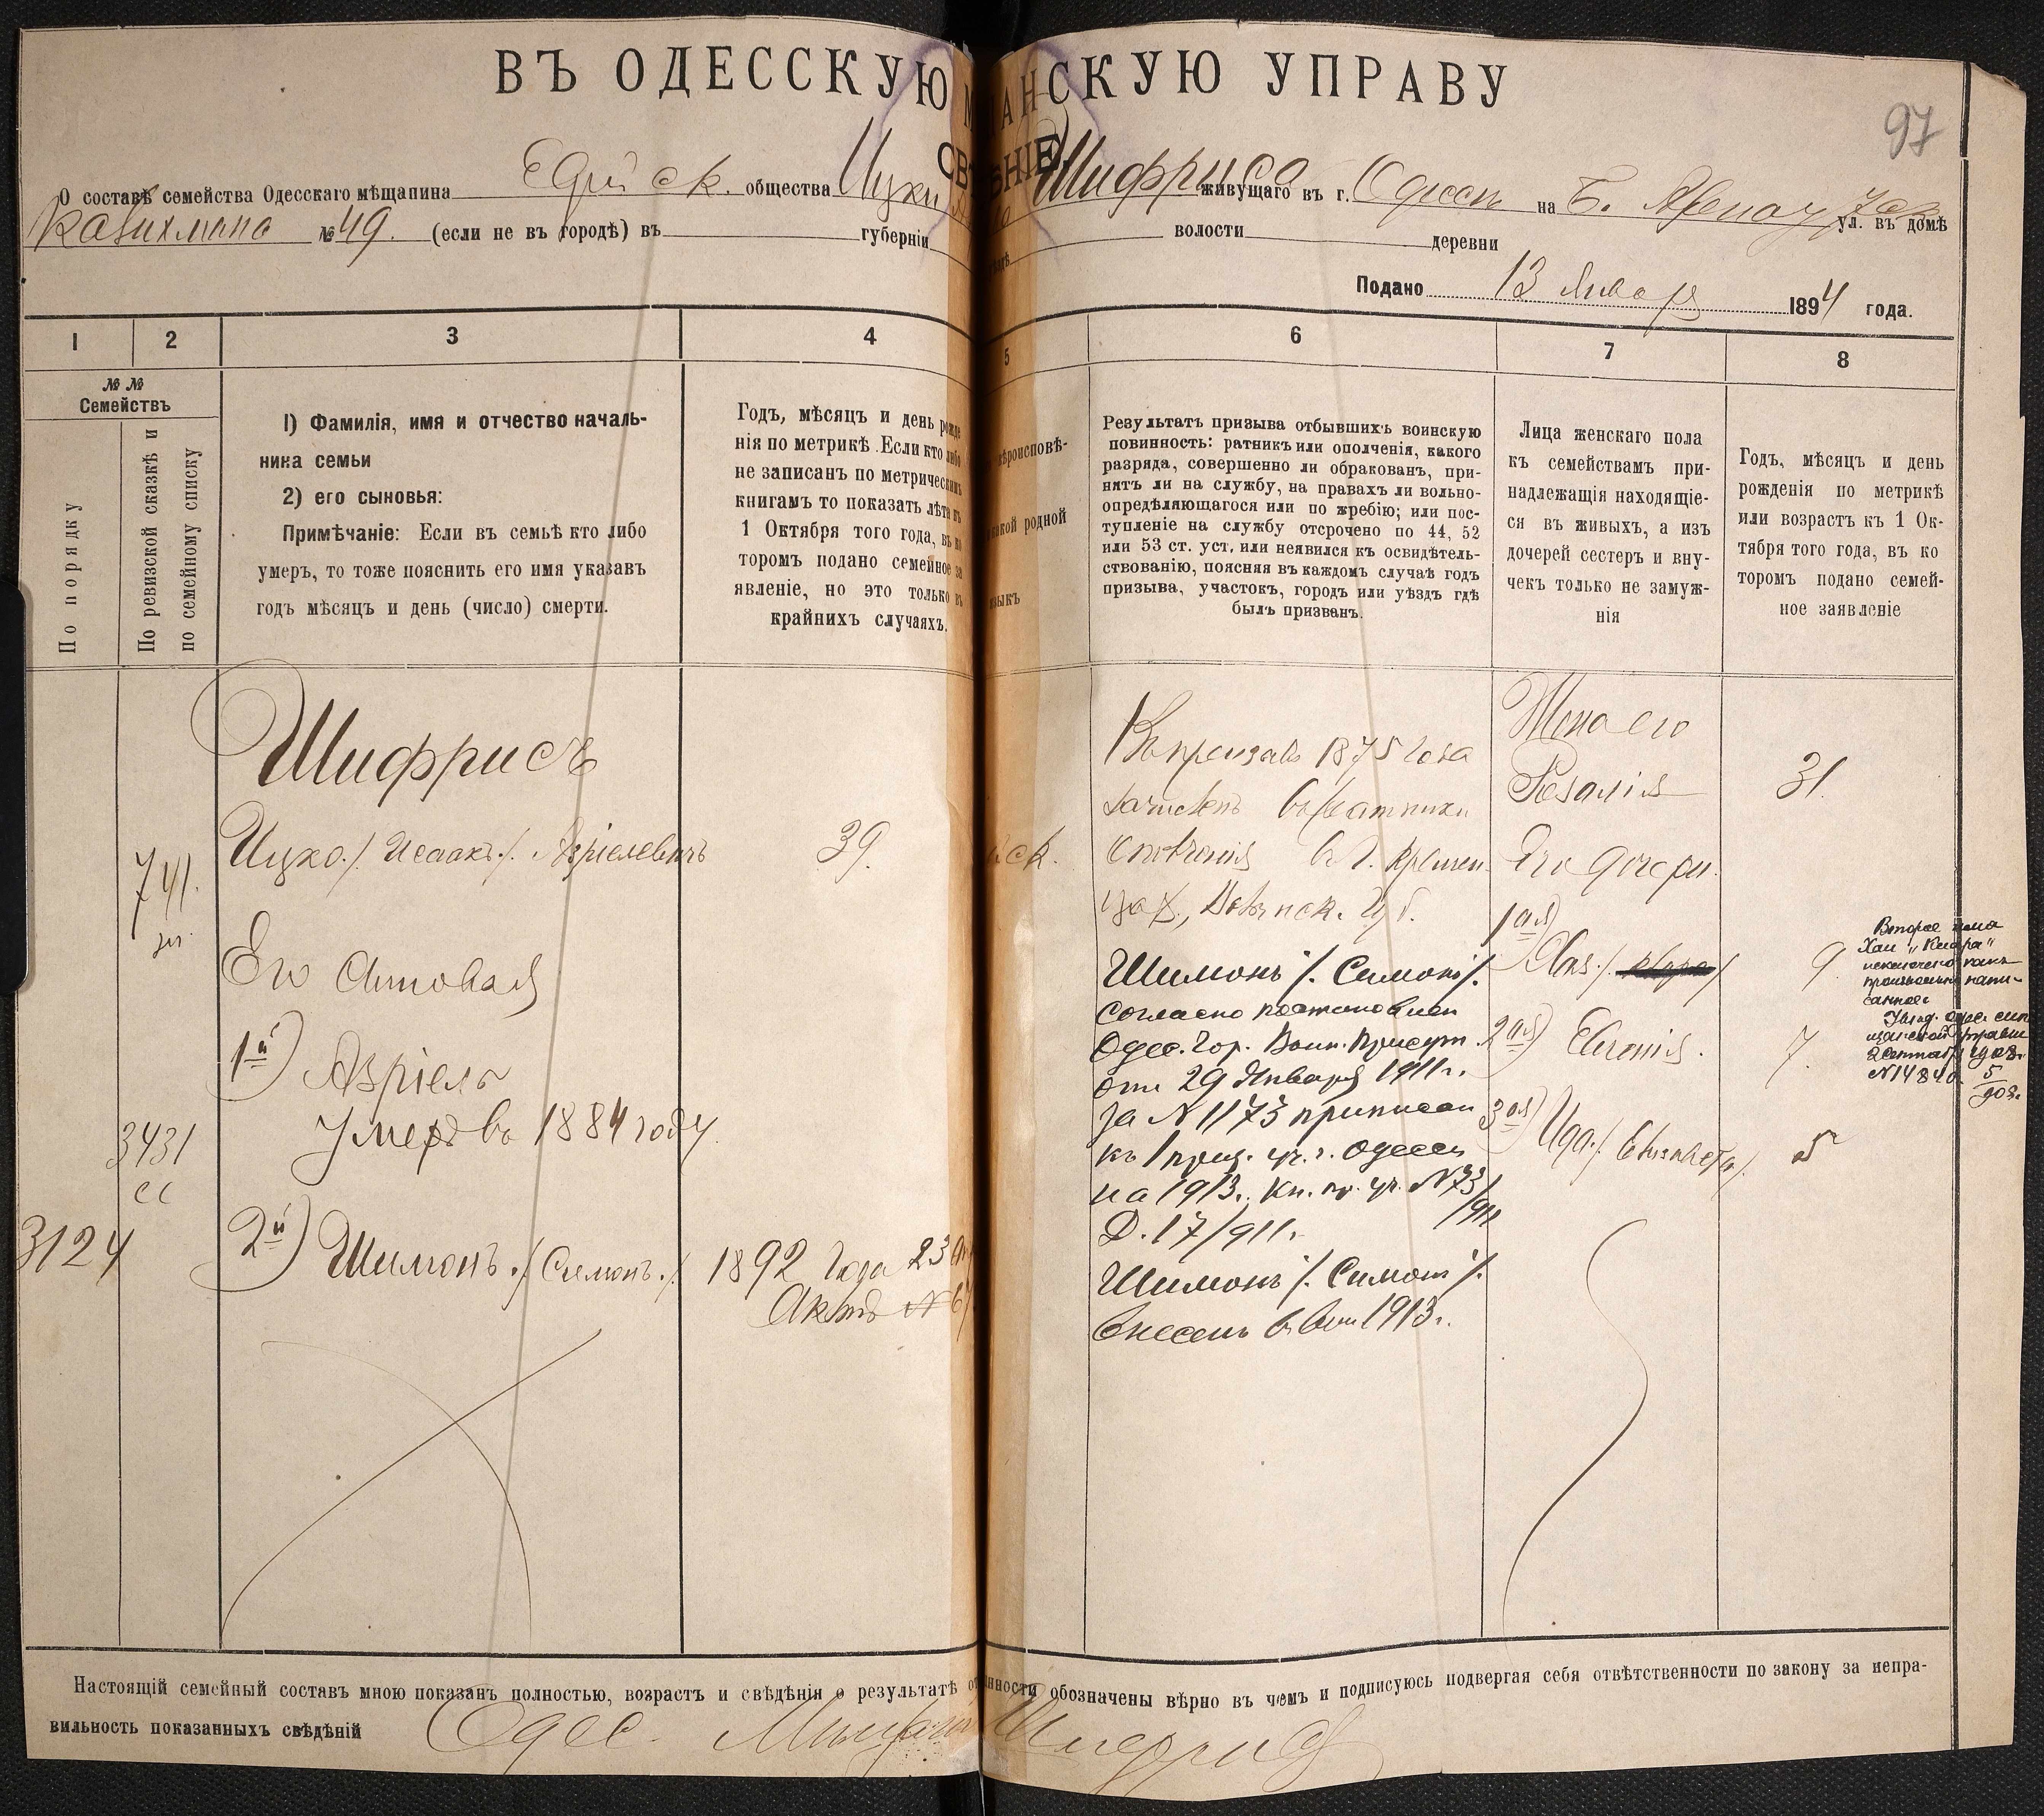 ВЪ ОДЕССКУЮ М АНСКУЮ УПРАВУ
97
О составѣ семейства Одесскаго мѣщанина общества Ицки Шифриса живущаго въ г. Одессѣ на Б. ул. въ домѣ
№ 49. (если не въ городѣ) въ губерніи волости деревни
Подано 13 Января 1894 года.
1 2 3 4 5 6 7 8
№ №
Семействъ
По порядку
По ревизской сказкѣ и
по семейному списку
1) Фамилія, имя и отчество началь-
ника семьи
2) его сыновья:
Примѣчаніе: Если въ семьѣ кто либо
умеръ, то тоже пояснить его имя указавъ
годъ мѣсяцъ и день (число) смерти.
Годъ, мѣсяцъ и день рожде
нія по метрикѣ. Если кто либо
не записанъ по метрическимъ
книгамъ то показать лѣта къ
1 Октября того года, въ ко
торомъ подано семейное за
явленіе, но это только въ
крайнихъ случаяхъ.
ѣроисповѣ-
какой родной
языкъ
Результатъ призыва отбывшихъ воинскую
повинность: ратникъ или ополченія, какого
разряда, совершенно ли обракованъ, при-
нятъ ли на службу, на правахъ ли вольно-
опредѣляющагося или по жребію; или пос-
тупленіе на службу отсрочено по 44, 52
или 53 ст. уст. или неявился къ освидѣтель-
ствованію, поясняя въ каждомъ случаѣ годъ
призыва, участокъ, городъ или уѣздъ гдѣ
былъ призванъ.
Лица женскаго пола
къ семействамъ при-
надлежащія находящіе-
ся въ живыхъ, а изъ
дочерей сестеръ и вну-
чекъ только не замуж-
нія
Годъ, мѣсяцъ и день
рожденія по метрикѣ
или возрастъ къ 1 Ок-
тября того года, въ ко
торомъ подано семей-
ное заявленіе
741.
3431
сс
3124
Шифрисъ
Ицко /. Исаакъ /. Азріелевичъ
Его сыновья
1й) Азріель
Умеръ въ 1884 году.
2й) Шимонъ. /. Симонъ. /.
39.
1892 года 23
Актъ № 6
Въ призывъ 1875 года
зачисленъ въ ратники
ополченія въ г. Кремен.
Шимонъ /. Симонъ /.
согласно постановлен
Одес. Гор. Воин. Присут.
отъ 29 Января 1911 г.
за № 1173 приписан
къ 1 приз. уч. г. Одессы
на 1913 г. Кн. пр. уч. № 73
/911
Д. 17/911 г.
Шимонъ /. Симонъ /.
внесенъ въ 1913 г.
Жена его
Розалія
Его дочери.
1ая) Хая. /. Клара /
2ая)
3ая) Ида. /. Елизавета /.
31.
9.
7.
5
Второе имя
Хаи „Клара“
исключено какъ
произвольно напи-
санное
№ 14840. 5
903.
Настоящій семейный составъ мною показанъ полностью, возрастъ и свѣдѣнія о результатѣ от нности обозначены вѣрно въ чемъ и подписуюсь подвергая себя отвѣтственности по закону за непра-
вильность показанныхъ свѣдѣній Одес. Мѣщанин Шифрис